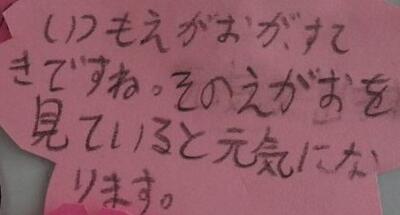 いつもえがおがすて
きですね。そのえがおを
見ていると元気にな
ります。